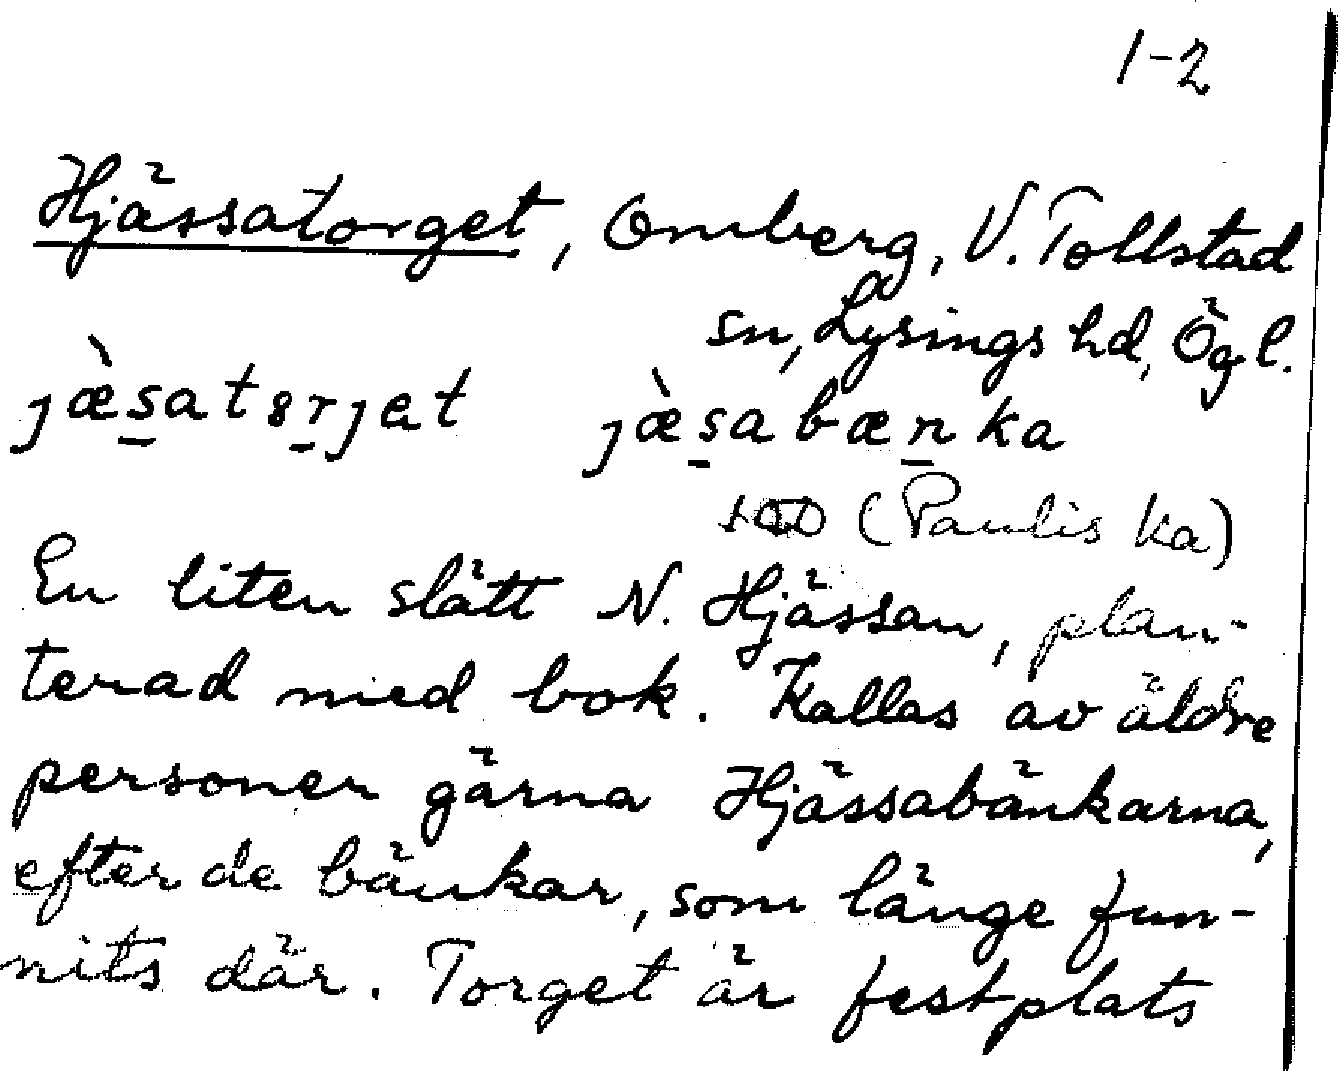 1-2
Hjässatorget, Omberg, V. Tollstad
sn, Lysings hd, Ögl.
jæ̀s̠atɜr̠jet jæ̀s̠abæn̠ka
(Paulis ka)
En liten slätt N. Hjässan, plan-
terad med bok. Kallas av äldre
personer gärna Hjässabänkarna,
efter de bänkar, som länge fun-
nits där. Torget är festplats